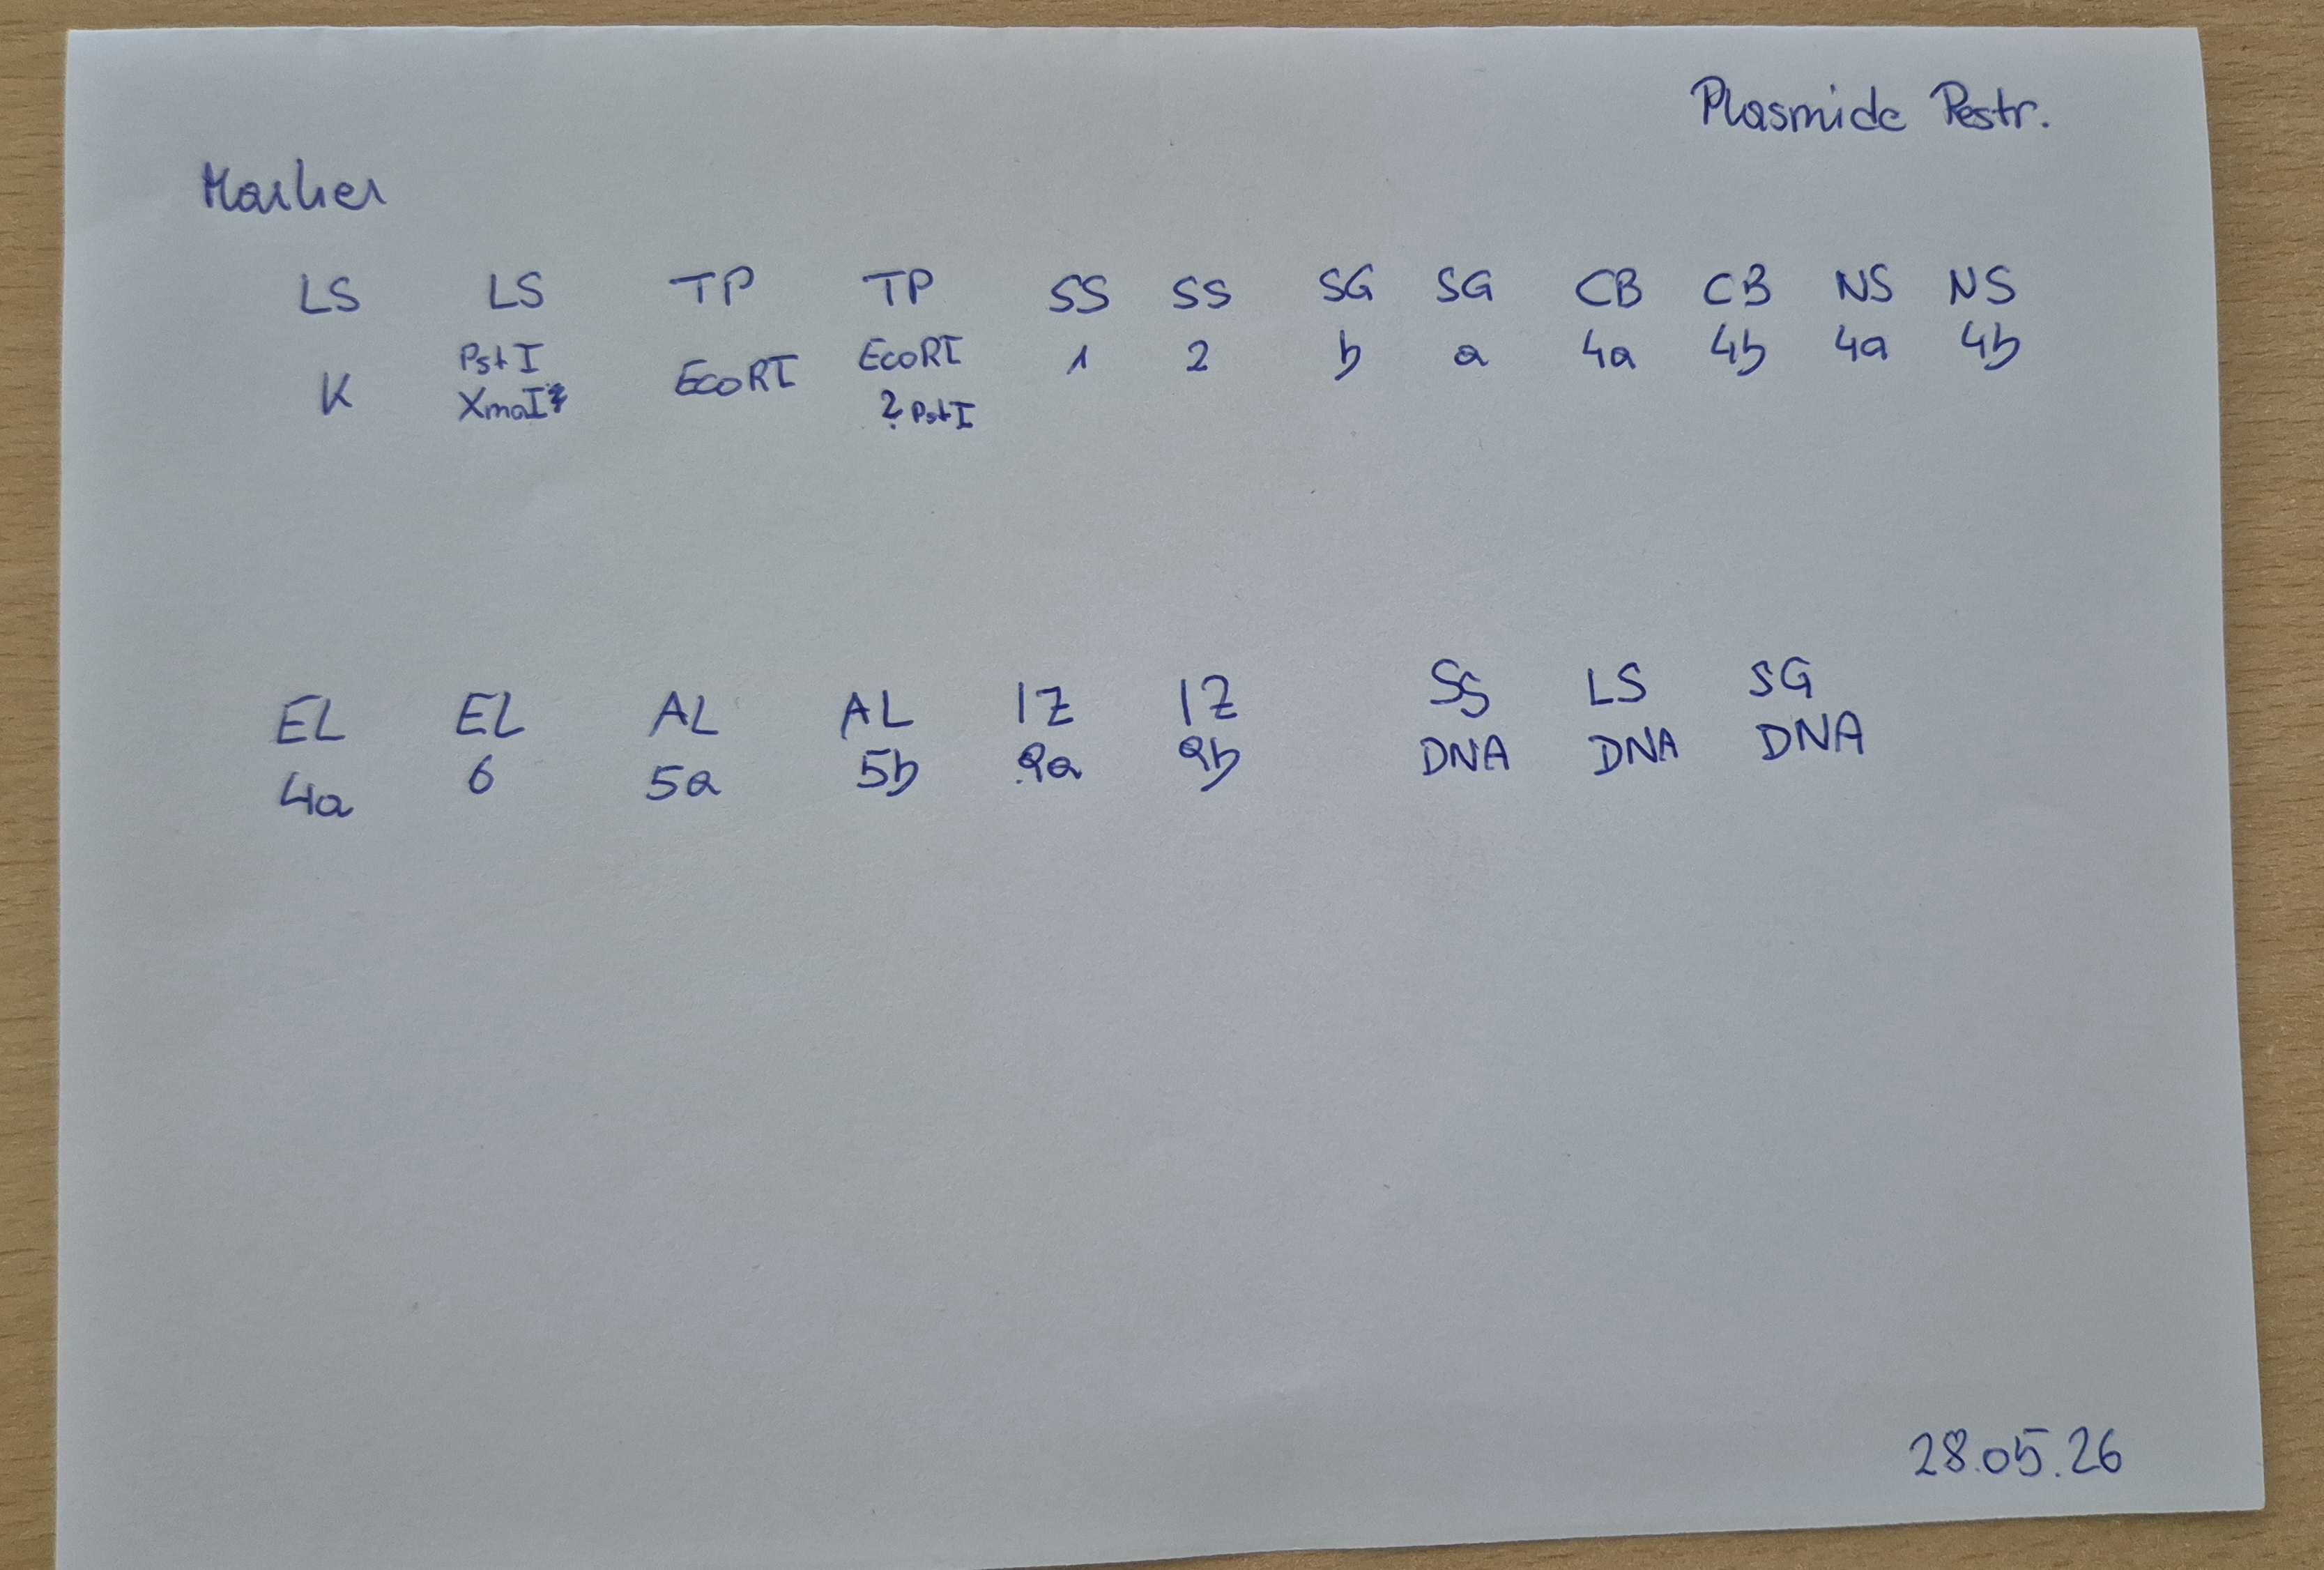 Plasmide Restr.
Marker
LS LS TP TP SS SS SG SG CB CB NS NS
K PstI XmaI EcoRI EcoRI ? PstI 1 2 b a 4a 4b 4a 4b
EL EL AL AL IZ IZ SS LS SG
4a 6 5a 5b 9a 9b DNA DNA DNA
28.05.26